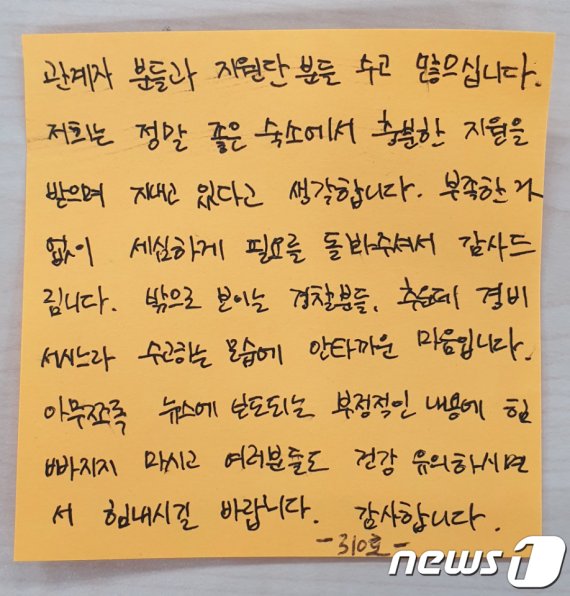 관계자 분들과 지원단 분들 수고 많으십니다.
저희는 정말 좋은 숙소에서 충분한 지원을
받으며 지내고 있다고 생각합니다. 부족한거
없이 세심하게 필요를 돌봐주셔서 감사드
립니다. 밖으로 보이는 경찰분들, 추운데 경비
서시느라 수고하는 모습에 안타까운 마음입니다.
아무쪼록 뉴스에 보도되는 부정적인 내용에 힘
빠지지 마시고 여러분들도 건강 유의하시면
서 힘내시길 바랍니다. 감사합니다.
-310호-
news1